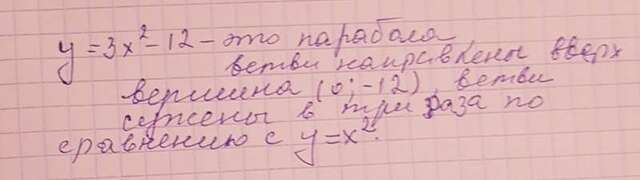 y = 3x² - 12 - это парабола,
ветви направлены вверх
вершина (0; -12), ветви
сужены в три раза по
сравнению с y = x².